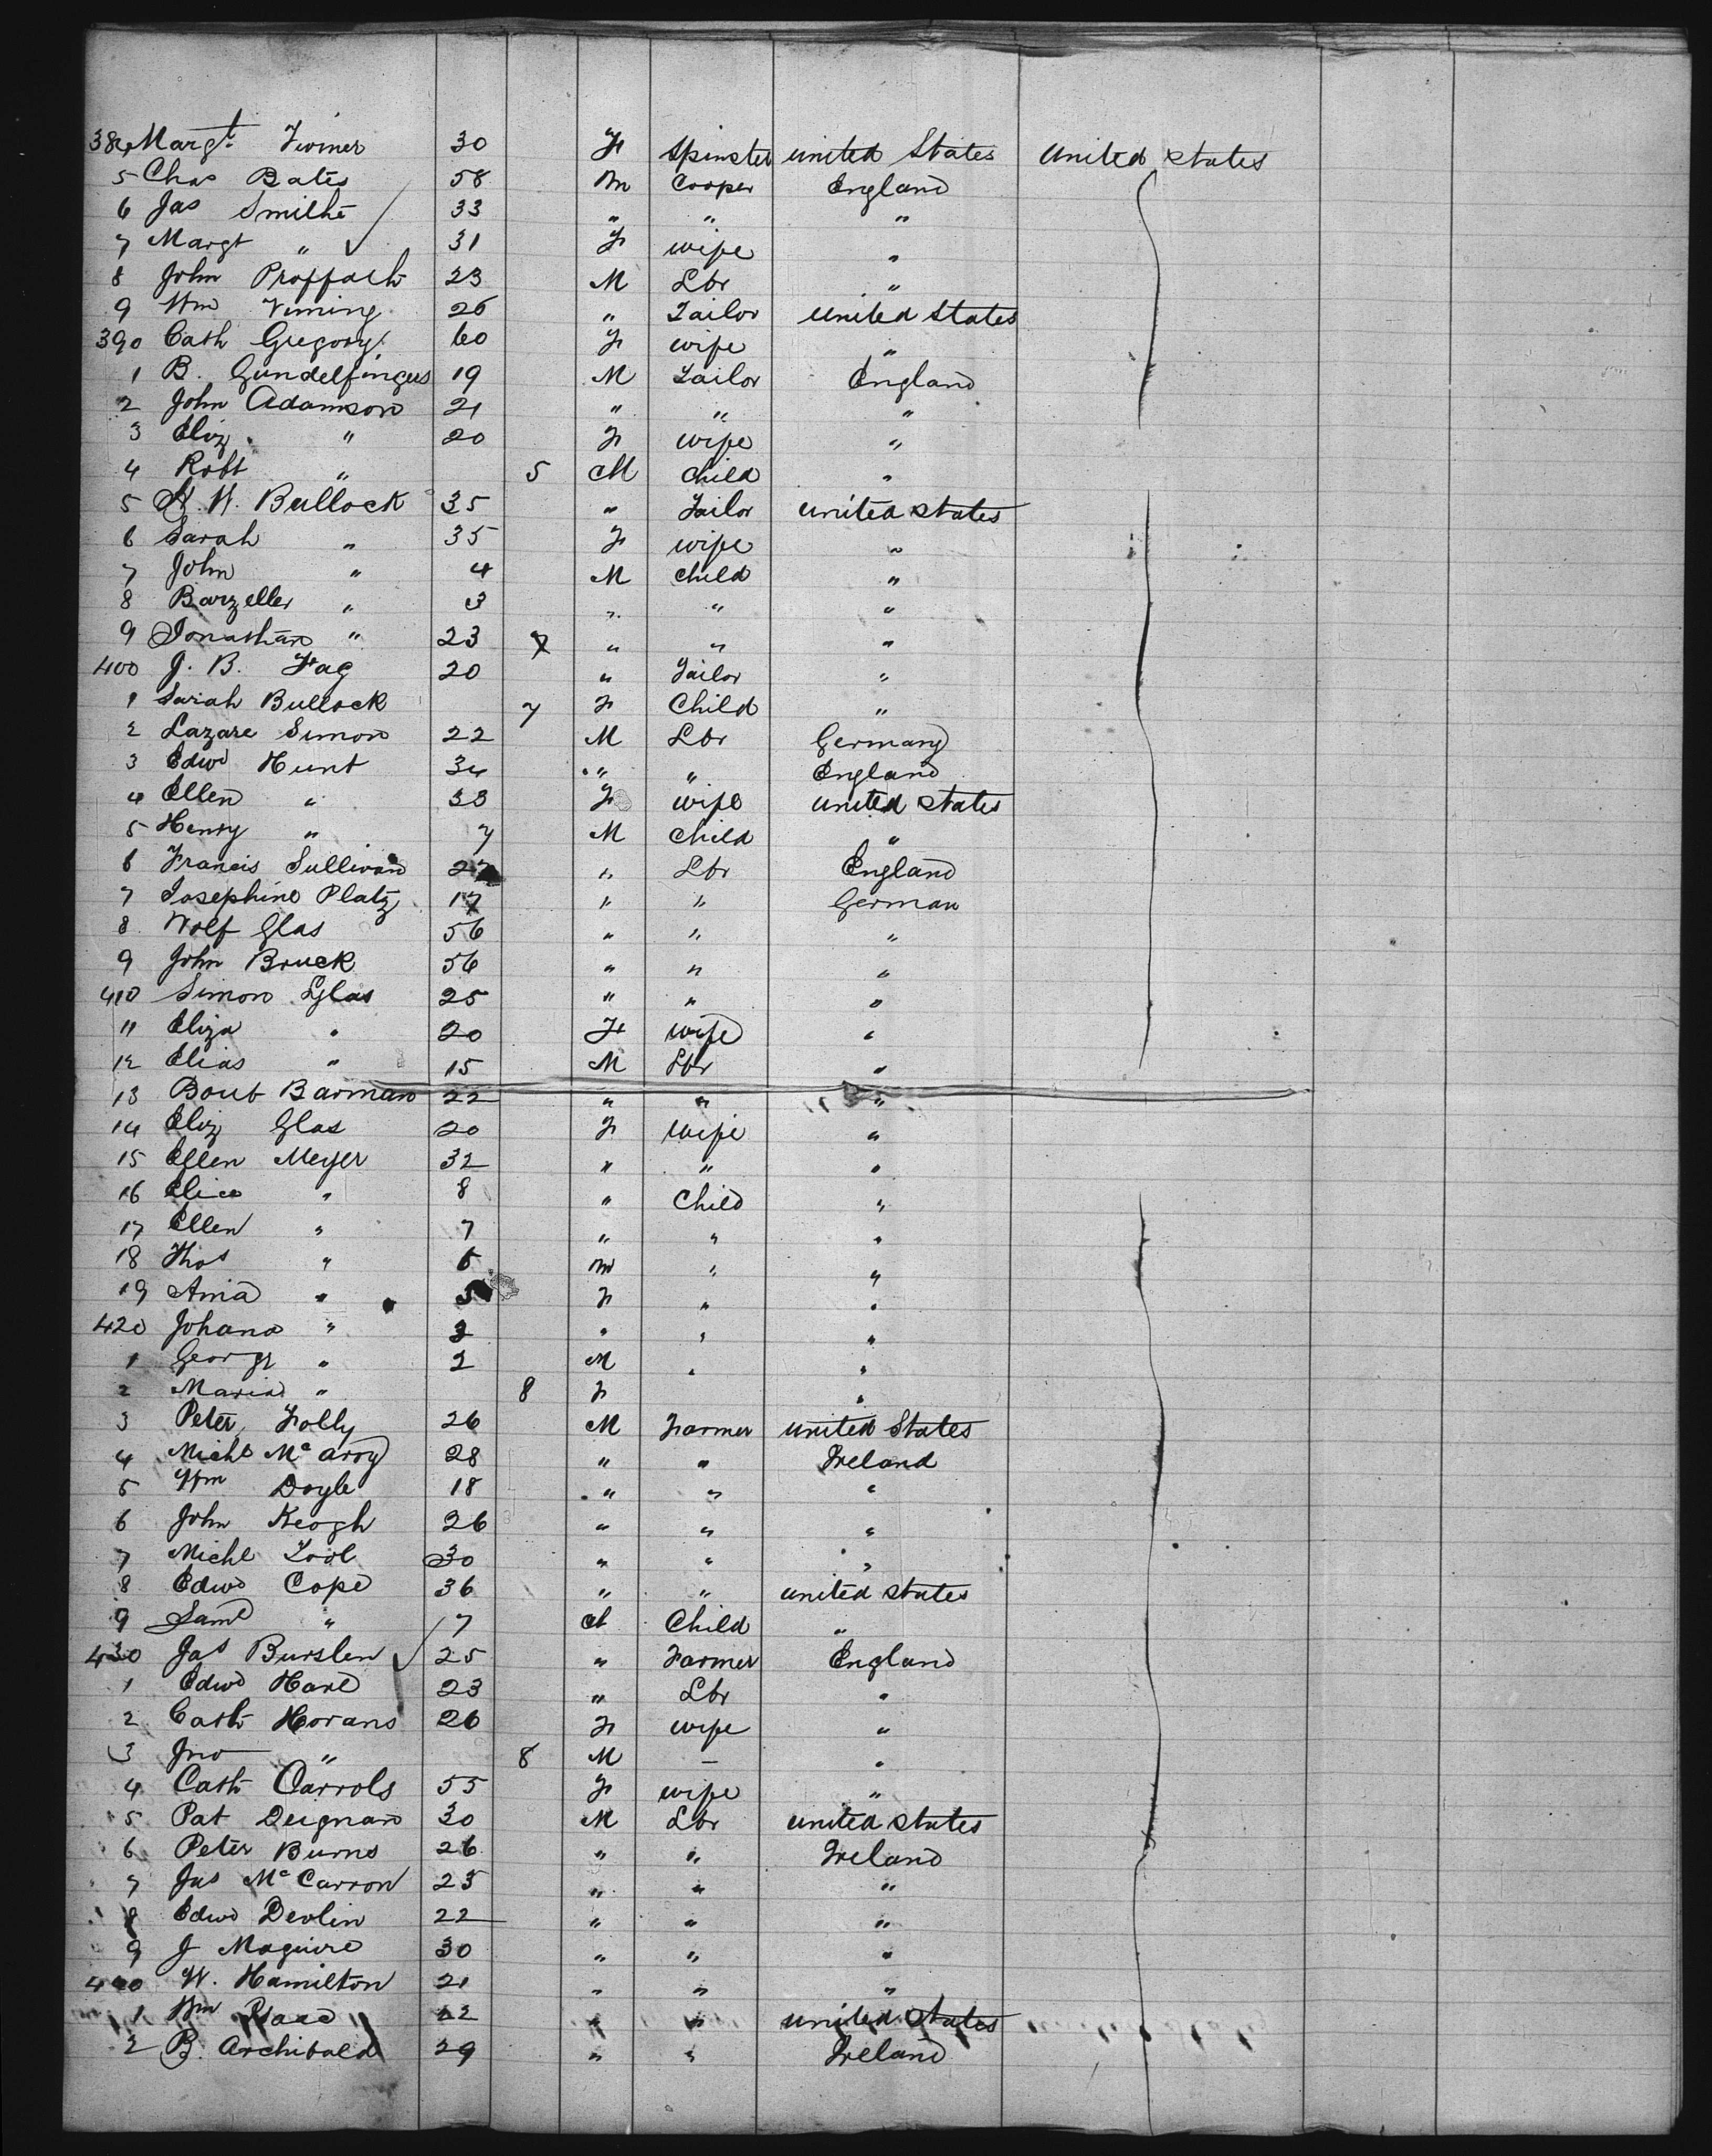 384 Margt Twiner 30 F Spinster united States United States
5 Chas Bates 58 M Cooper England
6 Jas Smithe 33 " " "
7 Margt " 31 F wife "
8 John Proffach 23 M Lbr "
9 Wm Vining 26 " Tailor united States
390 Cath Gregory 60 F wife "
1 B. Gundelfingus 19 M Tailor England
2 John Adamson 21 " " "
3 Eliz " 20 F wife "
4 Robt " 5 M child "
5 W. Bullock 35 " Tailor united states
6 Sarah " 35 F wife "
7 John " 4 M child "
8 Barzeller " 3 " " "
9 Jonathan " 23 " " "
400 J. B. Fag 20 " Tailor "
1 Sarah Bullock 7 F Child "
2 Lazare Simon 22 M Lbr Germany
3 Edwd Hunt 34 " " England
4 Ellen " 33 F wife united states
5 Henry " 7 M Child "
6 Francis Sullivan 27 " Lbr England
7 Josephine Platz 17 " " German
8 Wolf Glas 56 " " "
9 John Bruck 56 " " "
410 Simon Glas 25 " " "
11 Eliza " 20 F wife "
12 Elias " 15 M Lbr "
13 Bout Barman 22 " " "
14 Eliz Glas 20 F wife "
15 Ellen Meyer 32 " " "
16 Elice " 8 " Child "
17 Ellen " 7 " " "
18 Thos " 6 M " "
19 Ana " 5 F " "
420 Johana " 3 " " "
1 George " 2 M " "
2 Maria " 8 F "
3 Peter Folly 26 M Farmer united States
4 Michl McAroy 28 " " Ireland
5 Wm Doyle 18 " " "
6 John Keogh 26 " " "
7 Michl Tool 30 " " "
8 Edwd Cope 36 " " united states
9 Saml " 7 M Child "
430 Jas Burslen 25 " Farmer England
1 Edwd Hare 23 " Lbr "
2 Cath Horans 26 F wife "
3 Jno " 8 M – "
4 Cath Carrols 55 F wife "
5 Pat Deignan 30 M Lbr united states
6 Peter Burns 26 " " Ireland
7 Jas McCarron 25 " " "
8 Edwd Devlin 22 " " "
9 J Maguire 30 " " "
440 W. Hamilton 21 " " "
1 Wm 22 " " united states
2 B. Archibald 29 " " Ireland